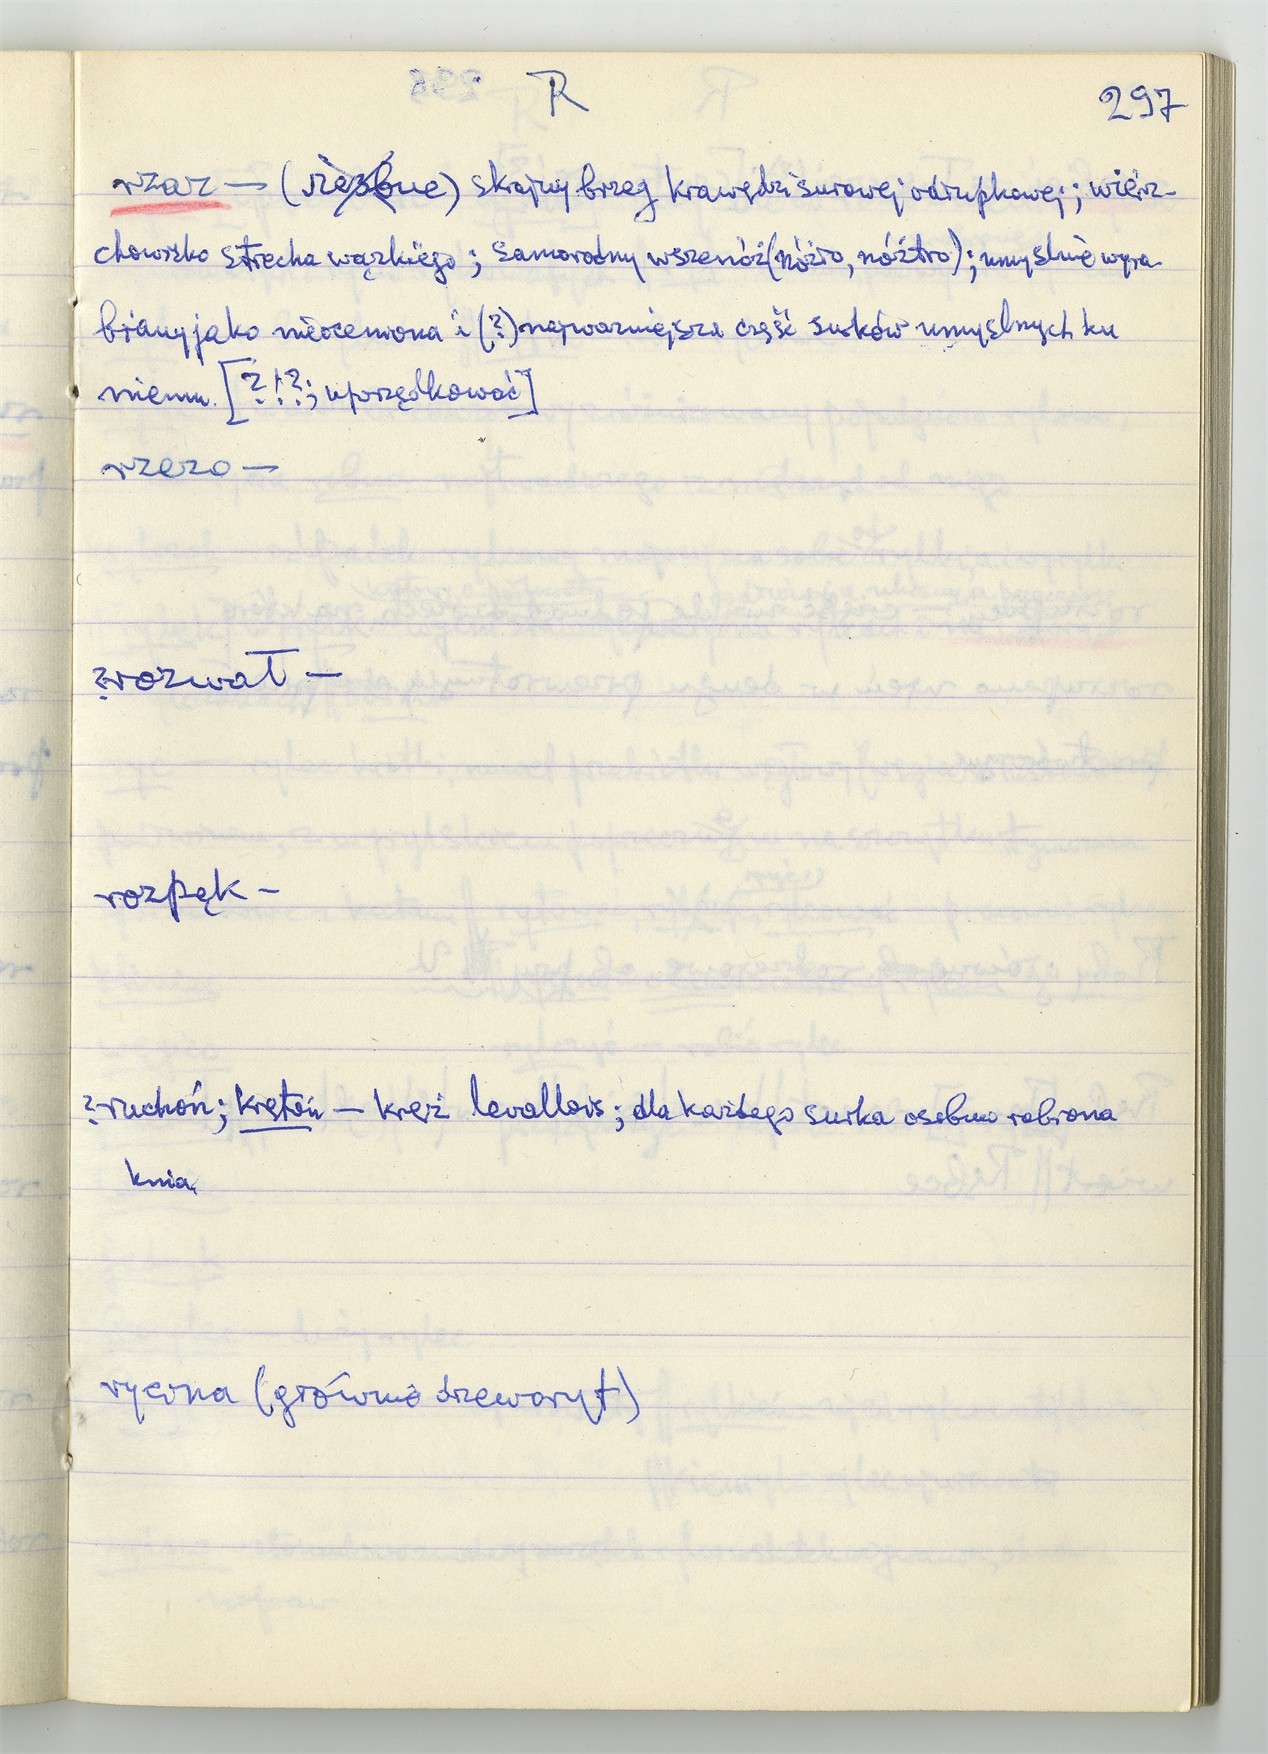 R 297
rzaz — (rzeźbne) skrajny brzeg krawędzi surowej odrupkowej; wierz-
chowisko strzecha wązkiego; samorodny wszenóż (nóżro, nóźtro); umyślnie wyra-
biany jako nieoceniona i (?) najważniejsza część surków umyślnych ku
niemu. [?!?; uporządkować]
rzezo —
?rozwał —
rozpęk —
?ruchoń; krętoń — kręż levallois; dla każdego surka osobno robiona
knia
rycina (głównie drzeworyt)